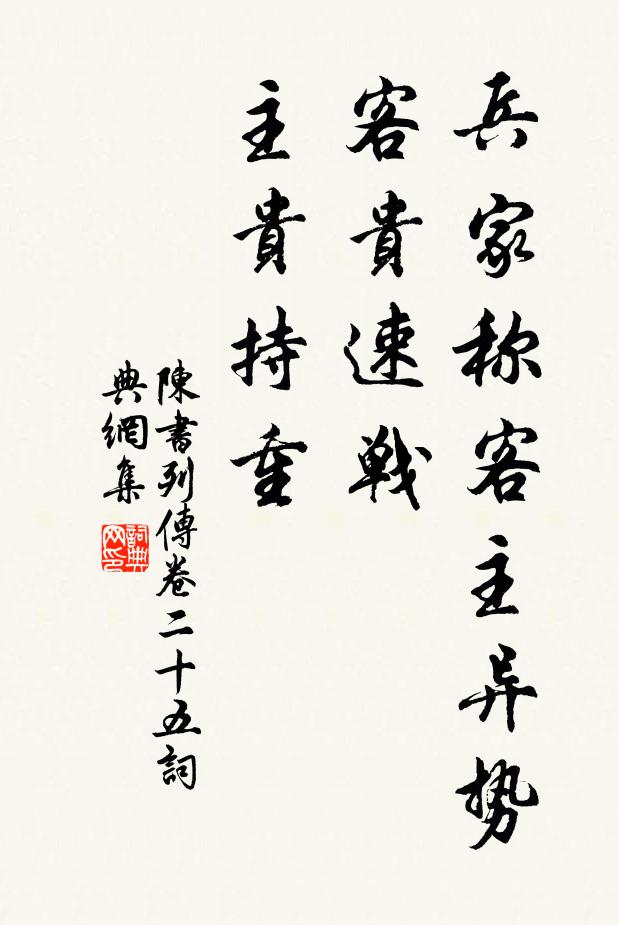 兵家称客主异势
客貴速戦
主貴持重
陳書列傳卷二十五詞
典網集
詞典
网印